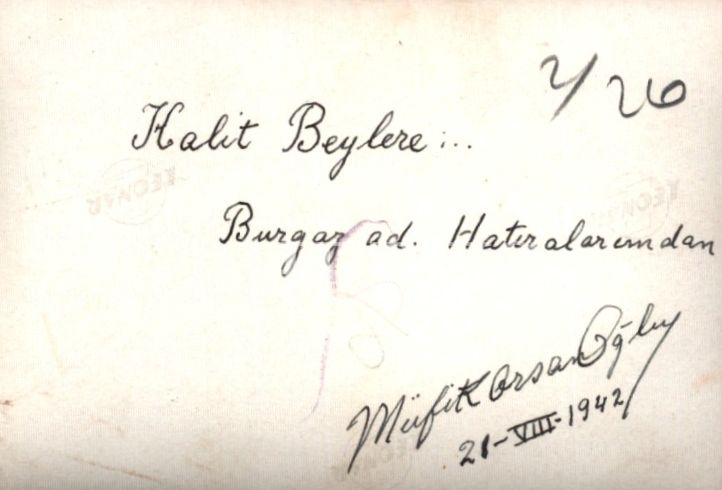 Y/26
Halit Beylere...
Burgaz ad. Hatıralarımdan
Müfit Korsan Oğlu
21-VIII-1942
LEONAR